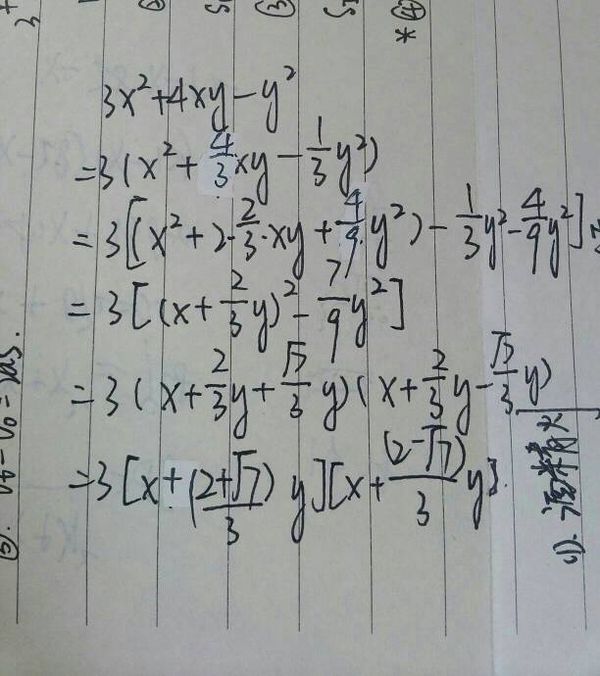 3x²+4xy-y²
=3(x²+4/3xy-1/3y²)
=3[(x²+2·2/3·xy+4/9y²)-1/3y²-4/9y²]
=3[(x+2/3y)²-7/9y²]
=3(x+2/3y+√7/3y)(x+2/3y-√7/3y)
=3[x+(2+√7)/3y][x+(2-√7)/3y]